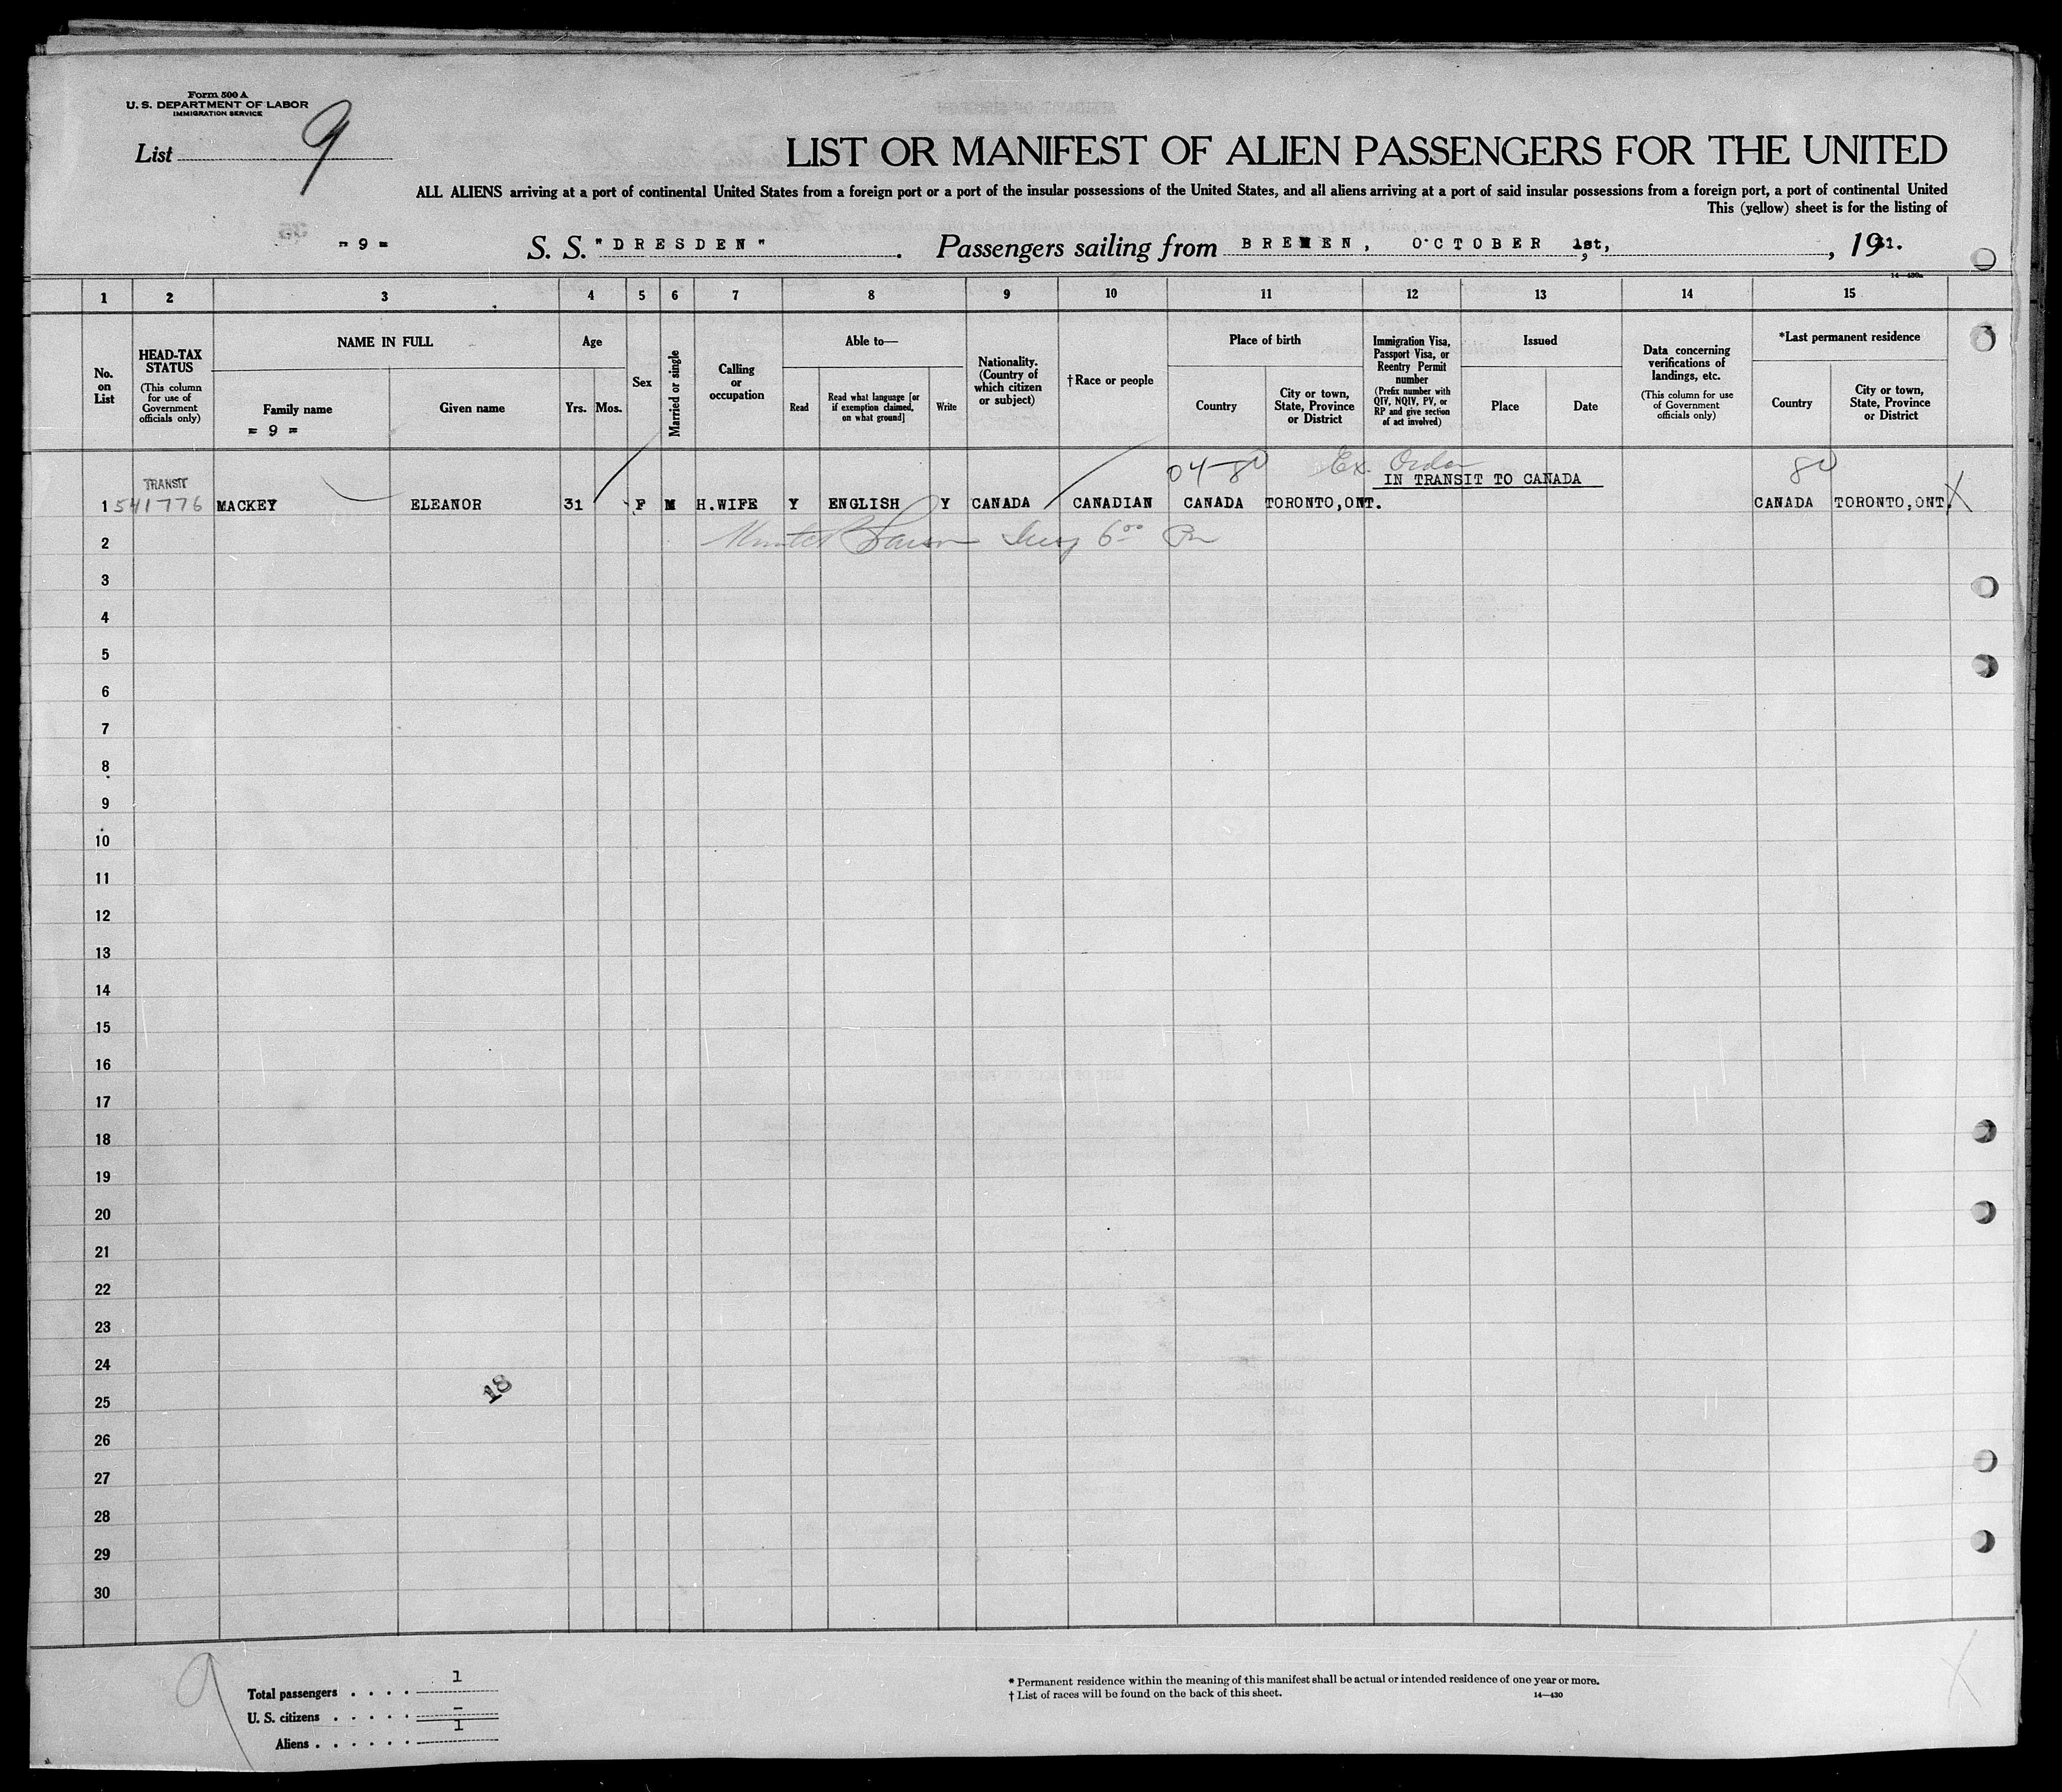 Form 500 A
U. S. DEPARTMENT OF LABOR
IMMIGRATION SERVICE
List 9
LIST OR MANIFEST OF ALIEN PASSENGERS FOR THE UNITED
ALL ALIENS arriving at a port of continental United States from a foreign port or a port of the insular possessions of the United States, and all aliens arriving at a port of said insular possessions from a foreign port, a port of continental United
This (yellow) sheet is for the listing of
= 9 = S. S. "DRESDEN". Passengers sailing from BREMEN, OCTOBER 1st, , 1931.
14—430a
1 2 3 4 5 6 7 8 9 10 11 12 13 14 15
No. on List
HEAD-TAX STATUS
(This column for use of Government officials only)
NAME IN FULL
Family name
= 9 =
Given name
Age
Yrs. Mos.
Sex
Married or single
Calling or occupation
Able to—
Read
Read what language [or if exemption claimed, on what ground]
Write
Nationality. (Country of which citizen or subject)
†Race or people
Place of birth
Country
City or town, State, Province or District
Immigration Visa, Passport Visa, or Reentry Permit number
(Prefix number with QIV, NQIV, PV, or RP and give section of act involved)
Issued
Place
Date
Data concerning verifications of landings, etc.
(This column for use of Government officials only)
*Last permanent residence
Country
City or town, State, Province or District
04-80 Ex. Order 80
TRANSIT IN TRANSIT TO CANADA
1 541776 MACKEY ELEANOR 31 F M H.WIFE Y ENGLISH Y CANADA CANADIAN CANADA TORONTO,ONT. CANADA TORONTO,ONT. X
2
3
4
5
6
7
8
9
10
11
12
13
14
15
16
17
18
19
20
21
22
23
24
25
18
26
27
28
29
30
9
Total passengers . . . . 1
U. S. citizens . . . . . -
Aliens . . . . . . 1
* Permanent residence within the meaning of this manifest shall be actual or intended residence of one year or more.
† List of races will be found on the back of this sheet.
14—430
X